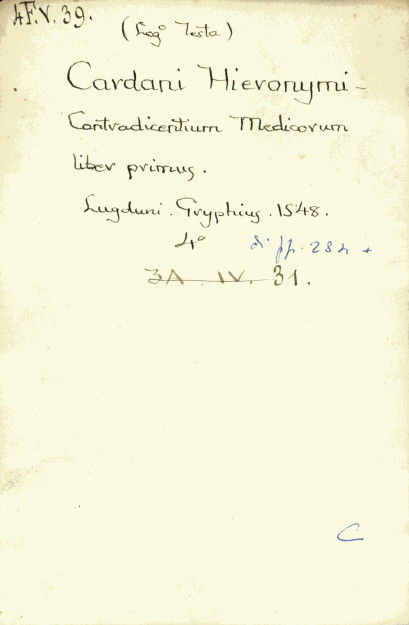 4F.V. 39.
(Leg° Testa)
Cardani Hieronymi -
Contradicentium Medicorum
liber primus.
Lugduni. Gryphius. 1548.
4° di pp. 284 +
3A. IV. 31.
C